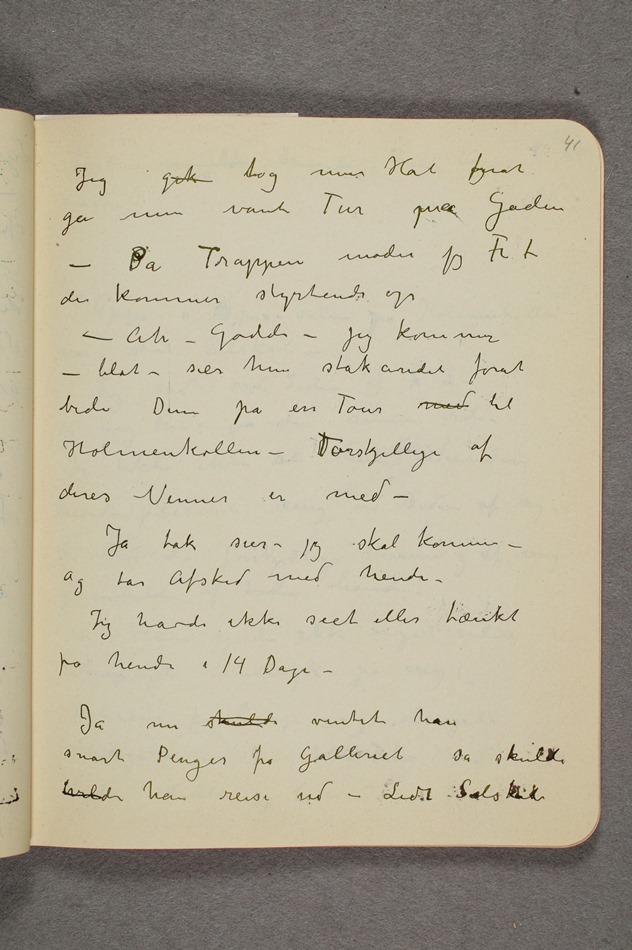 41
Jeg gik tog min Hat forat
gå min vante Tur på Gaden
– På Trappen møder jeg Frk L
der kommer styrtende op
– Ah – Goddag – jeg kommer
– blot – sier hun stakåndet forat
bede Dem på en Tour med til
Holmenkollen – Forskjellige af
deres Venner er med –
Ja tak sier – jeg skal komme –
og tar Afsked med hende –
Jeg havde ikke seet eller tænkt
på hende i 14 Dage –
Ja nu skulde ventet han
snart Penger fra Galleriet så skulde
vilde han reise ud – Lidt Selskab